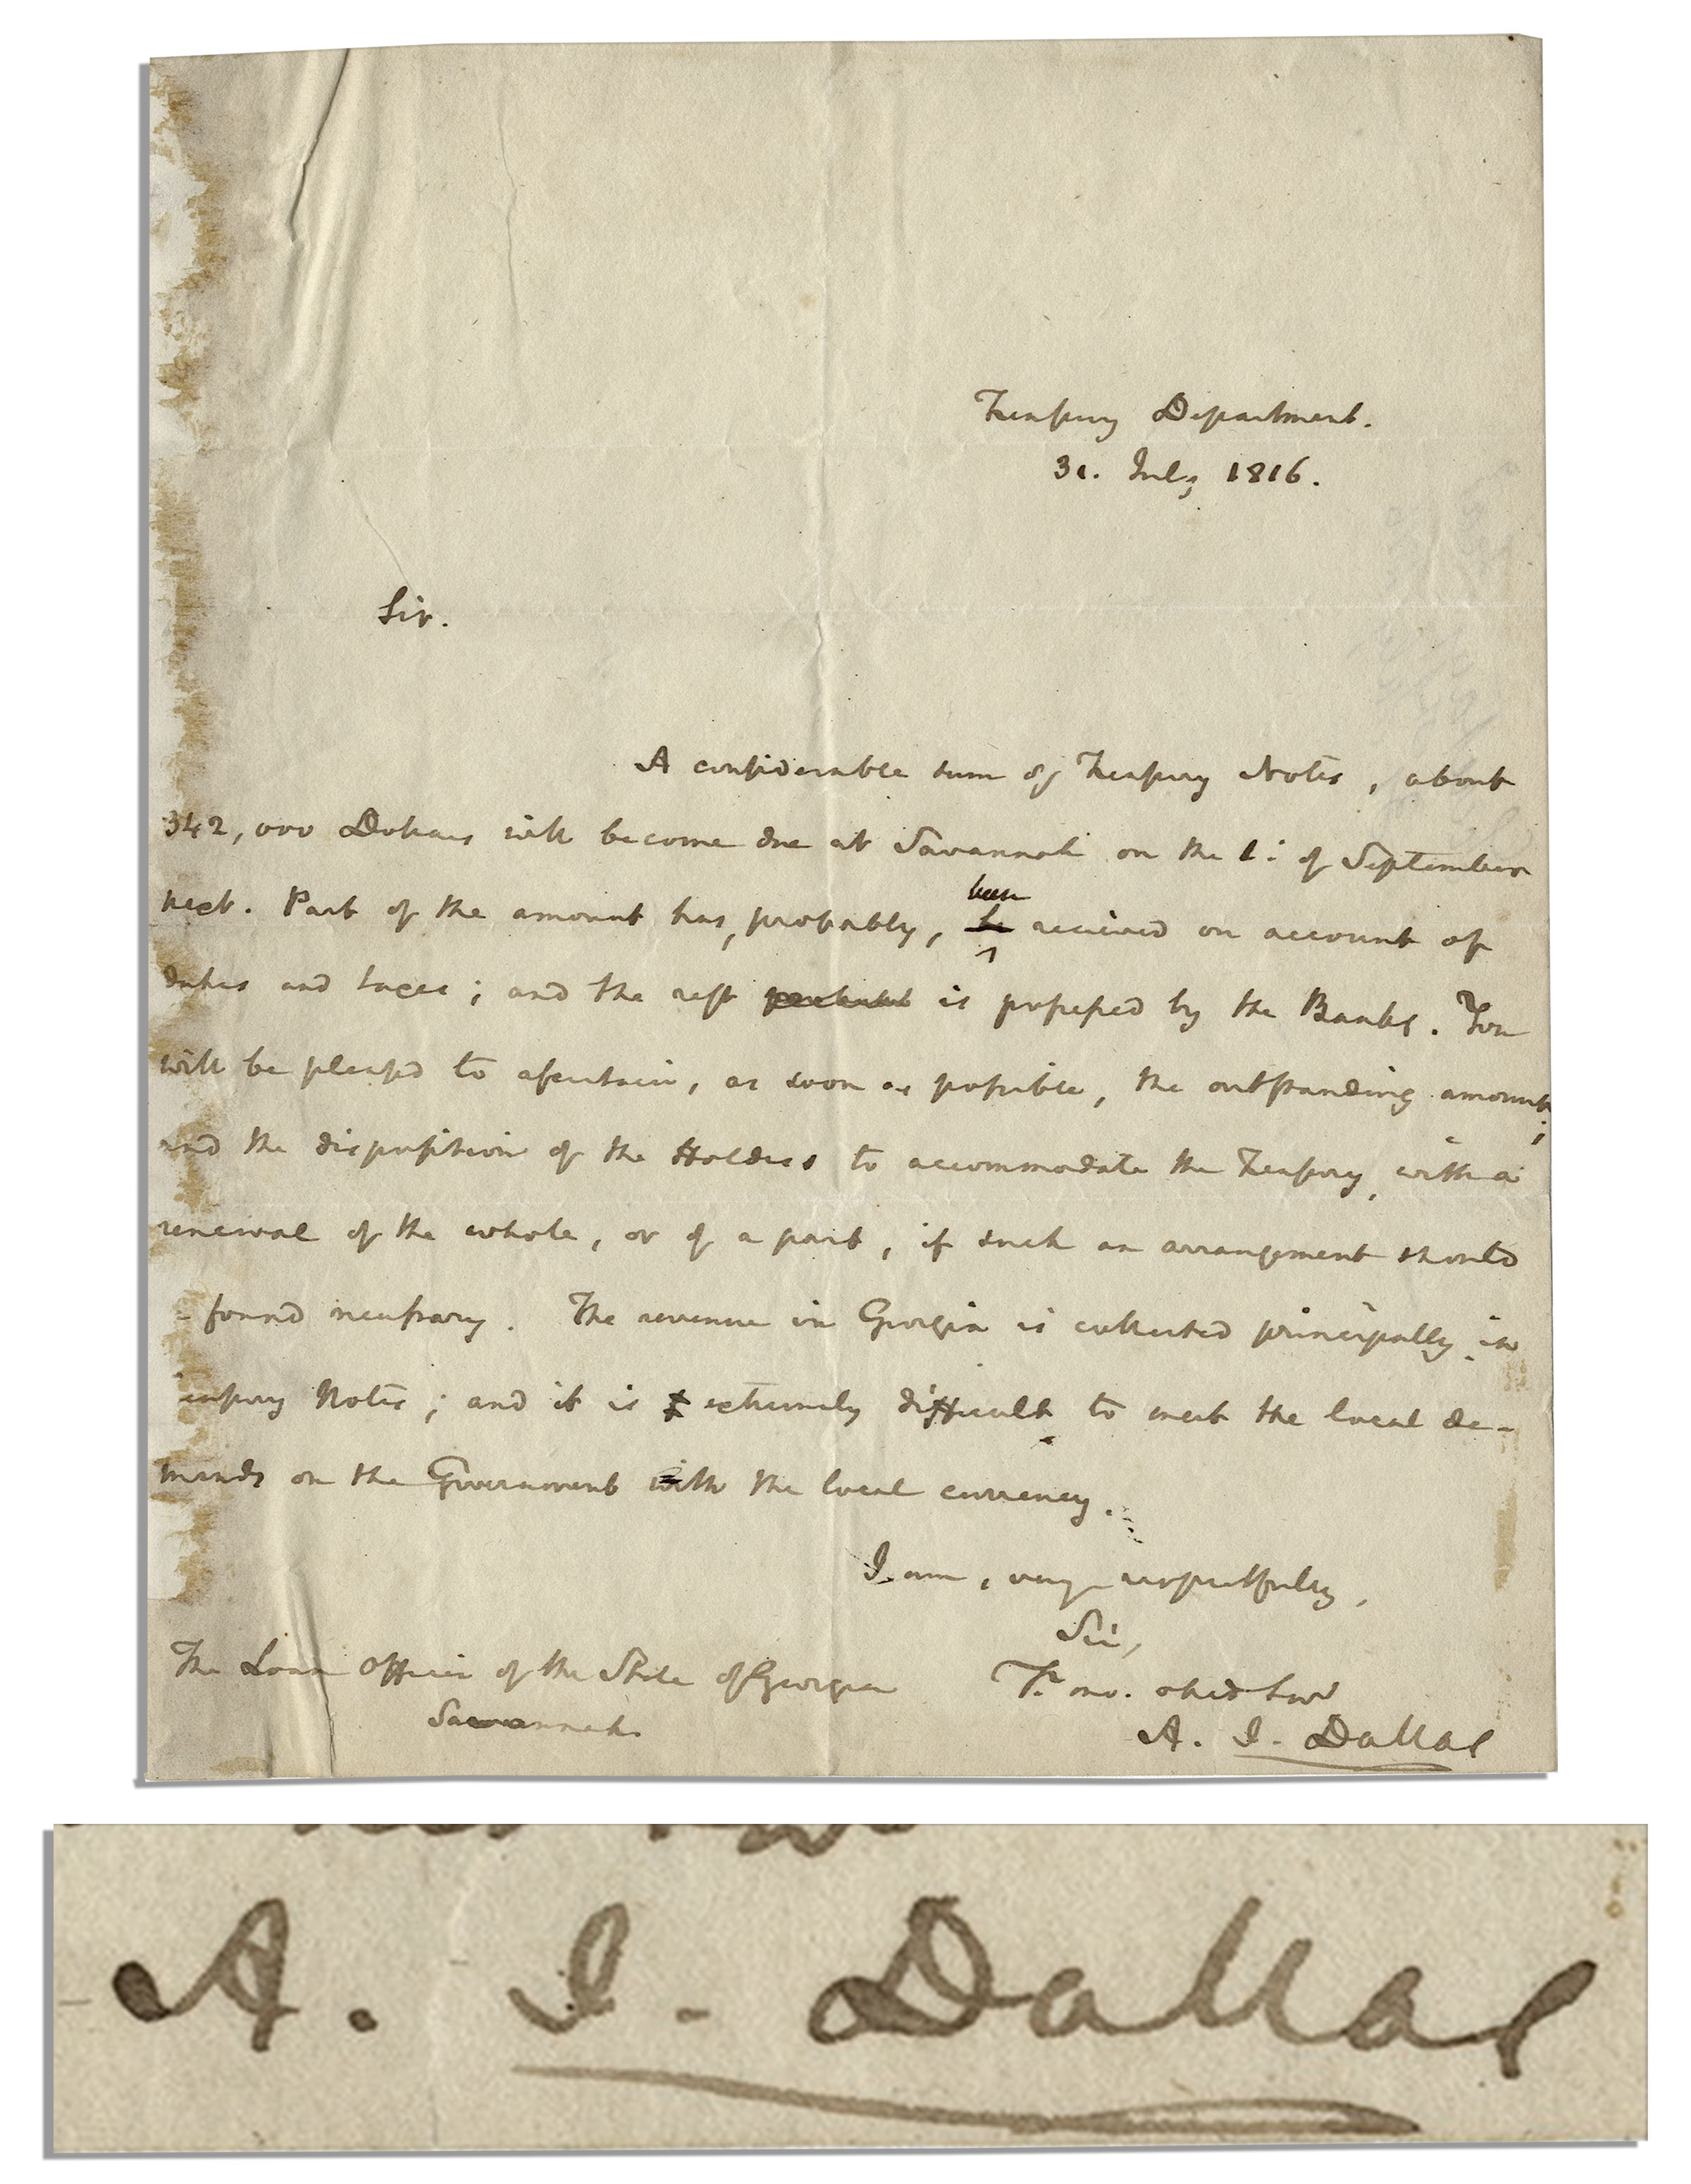 Treasury Department.
31. July 1816.
Sir.
A considerable sum of Treasury Notes, about
342,000 Dollars will become due at Savannah on the 1: of September
next. Part of the amount has, probably, been received on account of
duties and taxes; and the rest is possessed by the Banks. You
will be pleased to ascertain, as soon as possible, the outstanding amount;
and the disposition of the Holders to accommodate the Treasury, with a
renewal of the whole, or of a part, if such an arrangement should
found necessary. The revenue in Georgia is collected principally in
easury Notes; and it is extremely difficult, to meet the local de-
mands on the Government with the local currency.
I am, very respectfully,
Sir,
Yr. mo. obed Serv
A. I. Dallas
The Loan Officer of the State of Georgia
Savannah.
A. I. Dallas